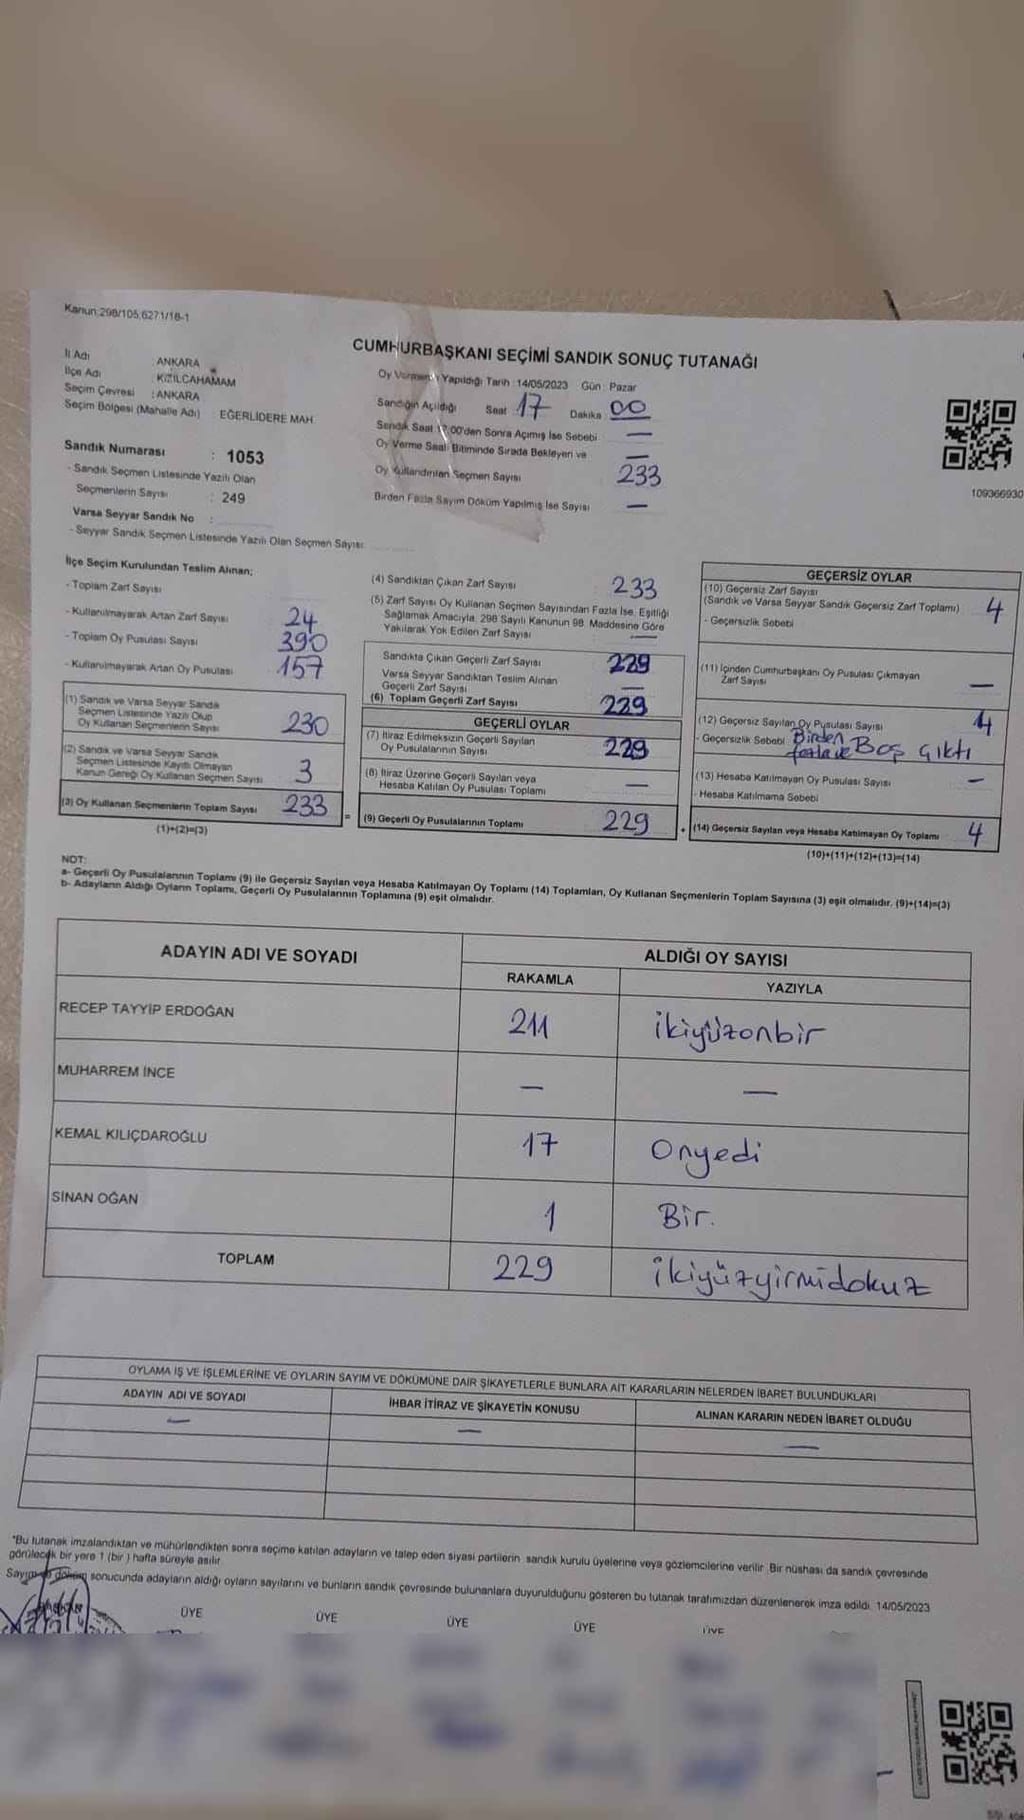 Kanun:298/105,6271/18-1
CUMHURBAŞKANI SEÇİMİ SANDIK SONUÇ TUTANAĞI
İl Adı ANKARA
İlçe Adı : KIZILCAHAMAM
Seçim Çevresi : ANKARA
Seçim Bölgesi (Mahalle Adı) : EĞERLİDERE MAH.
Oy Yapıldığı Tarih : 14/05/2023 Gün : Pazar
Sandığın Açıldığı Saat 17 Dakika 00
Sandık Saat 17:00'den Sonra Açmış İse Sebebi —
Oy Verme Saati Bitiminde Sırada Bekleyen ve —
Oy Kullandırılan Seçmen Sayısı 233
Birden Fazla Sayım Döküm Yapılmış İse Sayısı —
109366930
Sandık Numarası : 1053
- Sandık Seçmen Listesinde Yazılı Olan
Seçmenlerin Sayısı : 249
Varsa Seyyar Sandık No :
- Seyyar Sandık Seçmen Listesinde Yazılı Olan Seçmen Sayısı:
İlçe Seçim Kurulundan Teslim Alınan;
- Toplam Zarf Sayısı
- Kullanılmayarak Artan Zarf Sayısı 24
- Toplam Oy Pusulası Sayısı 390
- Kullanılmayarak Artan Oy Pusulası 157
(1) Sandık ve Varsa Seyyar Sandık
Seçmen Listesinde Yazılı Olup
Oy Kullanan Seçmenlerin Sayısı 230
(2) Sandık ve Varsa Seyyar Sandık
Seçmen Listesinde Kayıtlı Olmayan
Kanun Gereği Oy Kullanan Seçmen Sayısı 3
(3) Oy Kullanan Seçmenlerin Toplam Sayısı 233
(1)+(2)=(3)
(4) Sandıktan Çıkan Zarf Sayısı 233
(5) Zarf Sayısı Oy Kullanan Seçmen Sayısından Fazla İse, Eşitliği
Sağlamak Amacıyla, 298 Sayılı Kanunun 98. Maddesine Göre
Yakılarak Yok Edilen Zarf Sayısı —
Sandıkta Çıkan Geçerli Zarf Sayısı 229
Varsa Seyyar Sandıktan Teslim Alınan
Geçerli Zarf Sayısı —
(6) Toplam Geçerli Zarf Sayısı 229
GEÇERLİ OYLAR
(7) İtiraz Edilmeksizin Geçerli Sayılan
Oy Pusulalarının Sayısı 229
(8) İtiraz Üzerine Geçerli Sayılan veya
Hesaba Katılan Oy Pusulası Toplamı —
= (9) Geçerli Oy Pusulalarının Toplamı 229
GEÇERSİZ OYLAR
(10) Geçersiz Zarf Sayısı
(Sandık ve Varsa Seyyar Sandık Geçersiz Zarf Toplamı) 4
- Geçersizlik Sebebi
(11) İçinden Cumhurbaşkanı Oy Pusulası Çıkmayan
Zarf Sayısı —
(12) Geçersiz Sayılan Oy Pusulası Sayısı 4
- Geçersizlik Sebebi Birden
fazla ve Boş çıktı
(13) Hesaba Katılmayan Oy Pusulası Sayısı —
- Hesaba Katılmama Sebebi
+ (14) Geçersiz Sayılan veya Hesaba Katılmayan Oy Toplamı 4
(10)+(11)+(12)+(13)=(14)
NOT:
a- Geçerli Oy Pusulalarının Toplamı (9) ile Geçersiz Sayılan veya Hesaba Katılmayan Oy Toplamı (14) Toplamları, Oy Kullanan Seçmenlerin Toplam Sayısına (3) eşit olmalıdır. (9)+(14)=(3)
b- Adayların Aldığı Oyların Toplamı, Geçerli Oy Pusulalarının Toplamına (9) eşit olmalıdır.
ADAYIN ADI VE SOYADI ALDIĞI OY SAYISI
RAKAMLA YAZIYLA
RECEP TAYYİP ERDOĞAN 211 ikiyüzonbir
MUHARREM İNCE — —
KEMAL KILIÇDAROĞLU 17 Onyedi
SİNAN OĞAN 1 Bir.
TOPLAM 229 ikiyüzyirmidokuz
OYLAMA İŞ VE İŞLEMLERİNE VE OYLARIN SAYIM VE DÖKÜMÜNE DAİR ŞİKAYETLERLE BUNLARA AİT KARARLARIN NELERDEN İBARET BULUNDUKLARI
ADAYIN ADI VE SOYADI İHBAR İTİRAZ VE ŞİKAYETİN KONUSU ALINAN KARARIN NEDEN İBARET OLDUĞU
— — —
"Bu tutanak imzalandıktan ve mühürlendikten sonra seçime katılan adayların ve talep eden siyasi partilerin sandık kurulu üyelerine veya gözlemcilerine verilir. Bir nüshası da sandık çevresinde
görülecek bir yere 1 (bir) hafta süreyle asılır.
Sayım ve döküm sonucunda adayların aldığı oyların sayılarını ve bunların sandık çevresinde bulunanlara duyurulduğunu gösteren bu tutanak tarafımızdan düzenlenerek imza edildi. 14/05/2023
BAŞKAN ÜYE ÜYE ÜYE ÜYE ÜYE